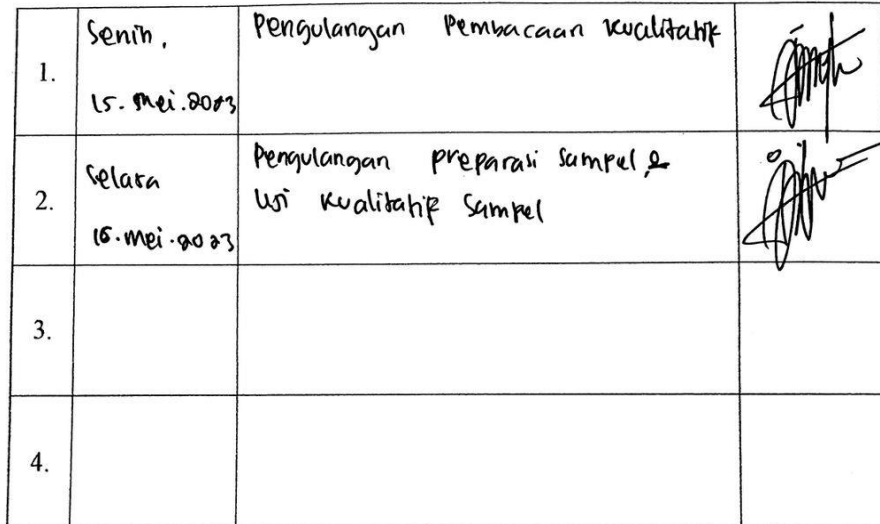 1.
Senin,
15. Mei. 2023
Pengulangan Pembacaan kualitatif
2.
Selasa
16. Mei. 2023
Pengulangan preparasi sampel &
Uji kualitatif Sampel
3.
4.